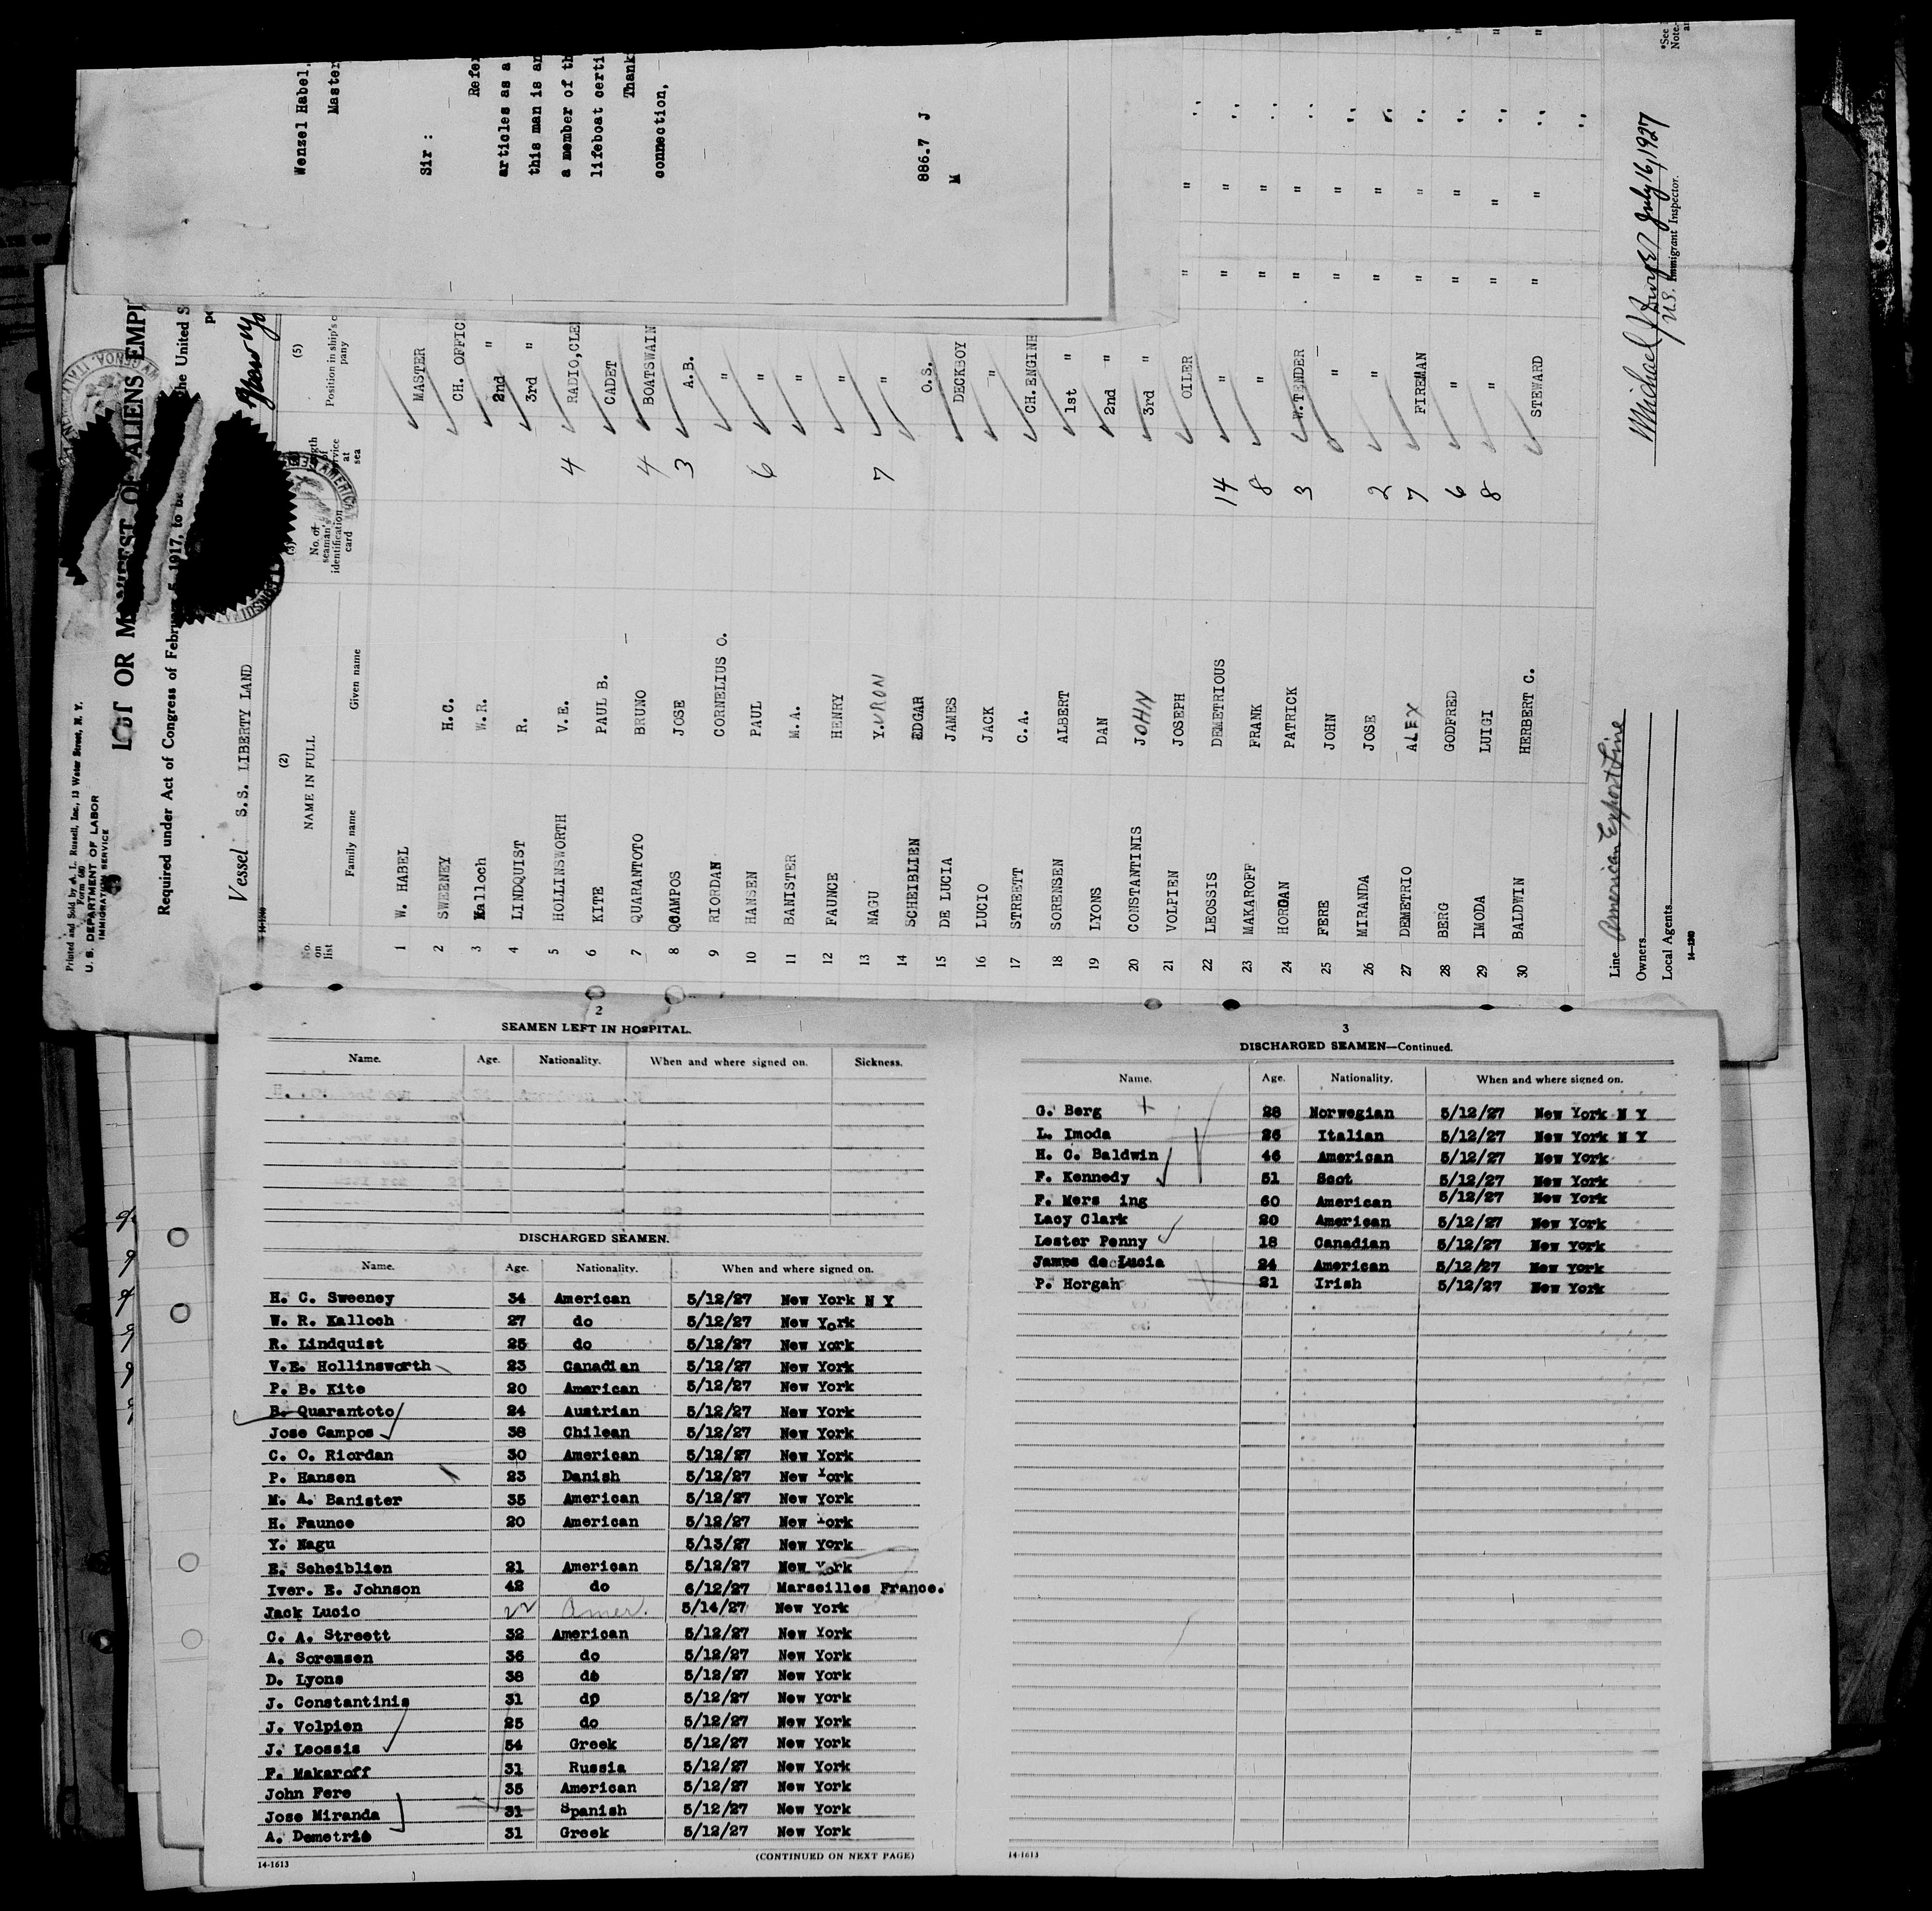 Wenzel Habel.
Master
Sir :
Refer
articles as a
this man is an
a member of th
lifeboat certi
Thank
connection,
886.7 J
M
Printed and Sold by A. L. Russell, Inc., 13 Water Street, N. Y.
Form 680
U. S. DEPARTMENT OF LABOR
IMMIGRATION SERVICE
LIST OR MANIFEST OF ALIENS EMPL
Required under Act of Congress of February 5, 1917, to be
the United S
Vessel S.S. LIBERTY LAND
14-1240
No. on list
(2)
NAME IN FULL
Family name Given name
(3)
No. of seaman's identification card
service at sea
(5)
Position in ship's c
pany
1 W. HABEL MASTER
2 SWEENEY H.C. CH. OFFICE
3 Kalloch W.R. 2nd "
4 LINDQUIST R. 3rd "
5 HOLLINSWORTH V.E. 4 RADIO,CLE
6 KITE PAUL B. CADET
7 QUARANTOTO BRUNO 4 BOATSWAIN
8 CAMPOS JOSE 3 A.B.
9 RIORDAN CORNELIUS O. "
10 HANSEN PAUL 6 "
11 BANISTER M.A. "
12 FAUNCE HENRY "
13 NAGU YURON 7 "
14 SCHEIBLIEN EDGAR O.S.
15 DE LUCIA JAMES DECKBOY
16 LUCIO JACK "
17 STREETT C.A. CH.ENGINE
18 SORENSEN ALBERT 1st "
19 LYONS DAN 2nd "
20 CONSTANTINIS JOHN 3rd "
21 VOLPIEN JOSEPH OILER " "
22 LEOSSIS DEMETRIOUS 14 " " "
23 MAKAROFF FRANK 8 " " "
24 HORGAN PATRICK 3 W.TENDER " "
25 FERE JOHN " " "
26 MIRANDA JOSE 2 " " "
27 DEMETRIO ALEX 7 FIREMAN " "
28 BERG GODFRED 6 " " "
29 IMODA LUIGI 8 " " "
30 BALDWIN HERBERT C. STEWARD " "
Line American Export Line
Owners
Local Agents
14-1240
Michael July 16, 1927
U.S. Immigrant Inspector.
*See
Note.
2
SEAMEN LEFT IN HOSPITAL.
Name. Age. Nationality. When and where signed on. Sickness.
DISCHARGED SEAMEN.
Name. Age. Nationality. When and where signed on.
H. C. Sweeney 34 American 5/12/27 New York N Y
W. R. Kalloch 27 do 5/12/27 New York
R. Lindquist 25 do 5/12/27 New York
V.E. Hollinsworth 23 Canadian 5/12/27 New York
P. B. Kite 20 American 5/12/27 New York
B. Quarantoto 24 Austrian 5/12/27 New York
Jose Campos 38 Chilean 5/12/27 New York
C. O. Riordan 30 American 5/12/27 New York
P. Hansen 23 Danish 5/12/27 New York
M. A. Banister 35 American 5/12/27 New York
H. Faunce 20 American 5/12/27 New York
Y. Nagu 5/13/27 New York
E. Scheiblien 21 American 5/12/27 New York
Iver. E. Johnson 42 do 6/12/27 Marseilles France.
Jack Lucio 22 Amer. 5/14/27 New York
C. A. Streett 32 American 5/12/27 New York
A. Sorensen 36 do 5/12/27 New York
D. Lyons 38 do 5/12/27 New York
J. Constantinis 31 do 5/12/27 New York
J. Volpien 25 do 5/12/27 New York
J. Leossis 54 Greek 5/12/27 New York
F. Makaroff 31 Russia 5/12/27 New York
John Fere 35 American 5/12/27 New York
Jose Miranda 31 Spanish 5/12/27 New York
A. Demetrio 31 Greek 5/12/27 New York
(CONTINUED ON NEXT PAGE)
14-1613
3
DISCHARGED SEAMEN—Continued.
Name. Age. Nationality. When and where signed on.
G. Berg 28 Norwegian 5/12/27 New York N Y
L. Imoda 26 Italian 5/12/27 New York N Y
H. C. Baldwin 46 American 5/12/27 New York
P. Kennedy 51 Scot 5/12/27 New York
F. Mers ing 60 American 5/12/27 New York
Lacy Clark 20 American 5/12/27 New York
Lester Penny 18 Canadian 5/12/27 New York
James de Lucia 24 American 5/12/27 New York
P. Horgan 21 Irish 5/12/27 New York
14-1613